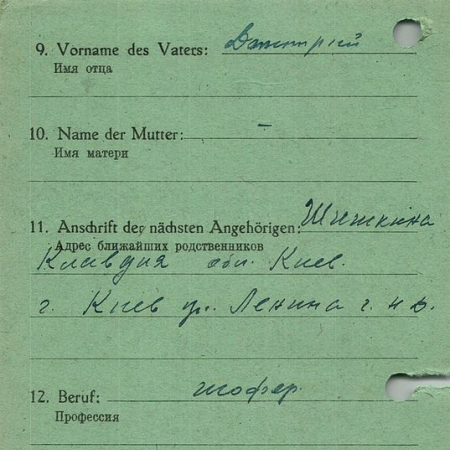 9. Vorname des Vaters: Дмитрий
Имя отца
10. Name der Mutter: –
Имя матери
11. Anschrift der nächsten Angehörigen: Шишкина
Адрес ближайших родственников
Клавдия обл. Киев.
г. Киев ул. Ленина
12. Beruf: шофер.
Профессия